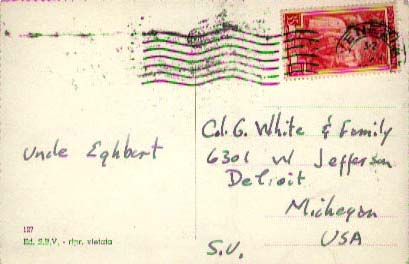 Uncle Eghbert
Col. G. White & Family
6301 W Jefferson
Detroit
Michegan
USA
S.V.
127
Ed. S.B.V. - ripr. vietata